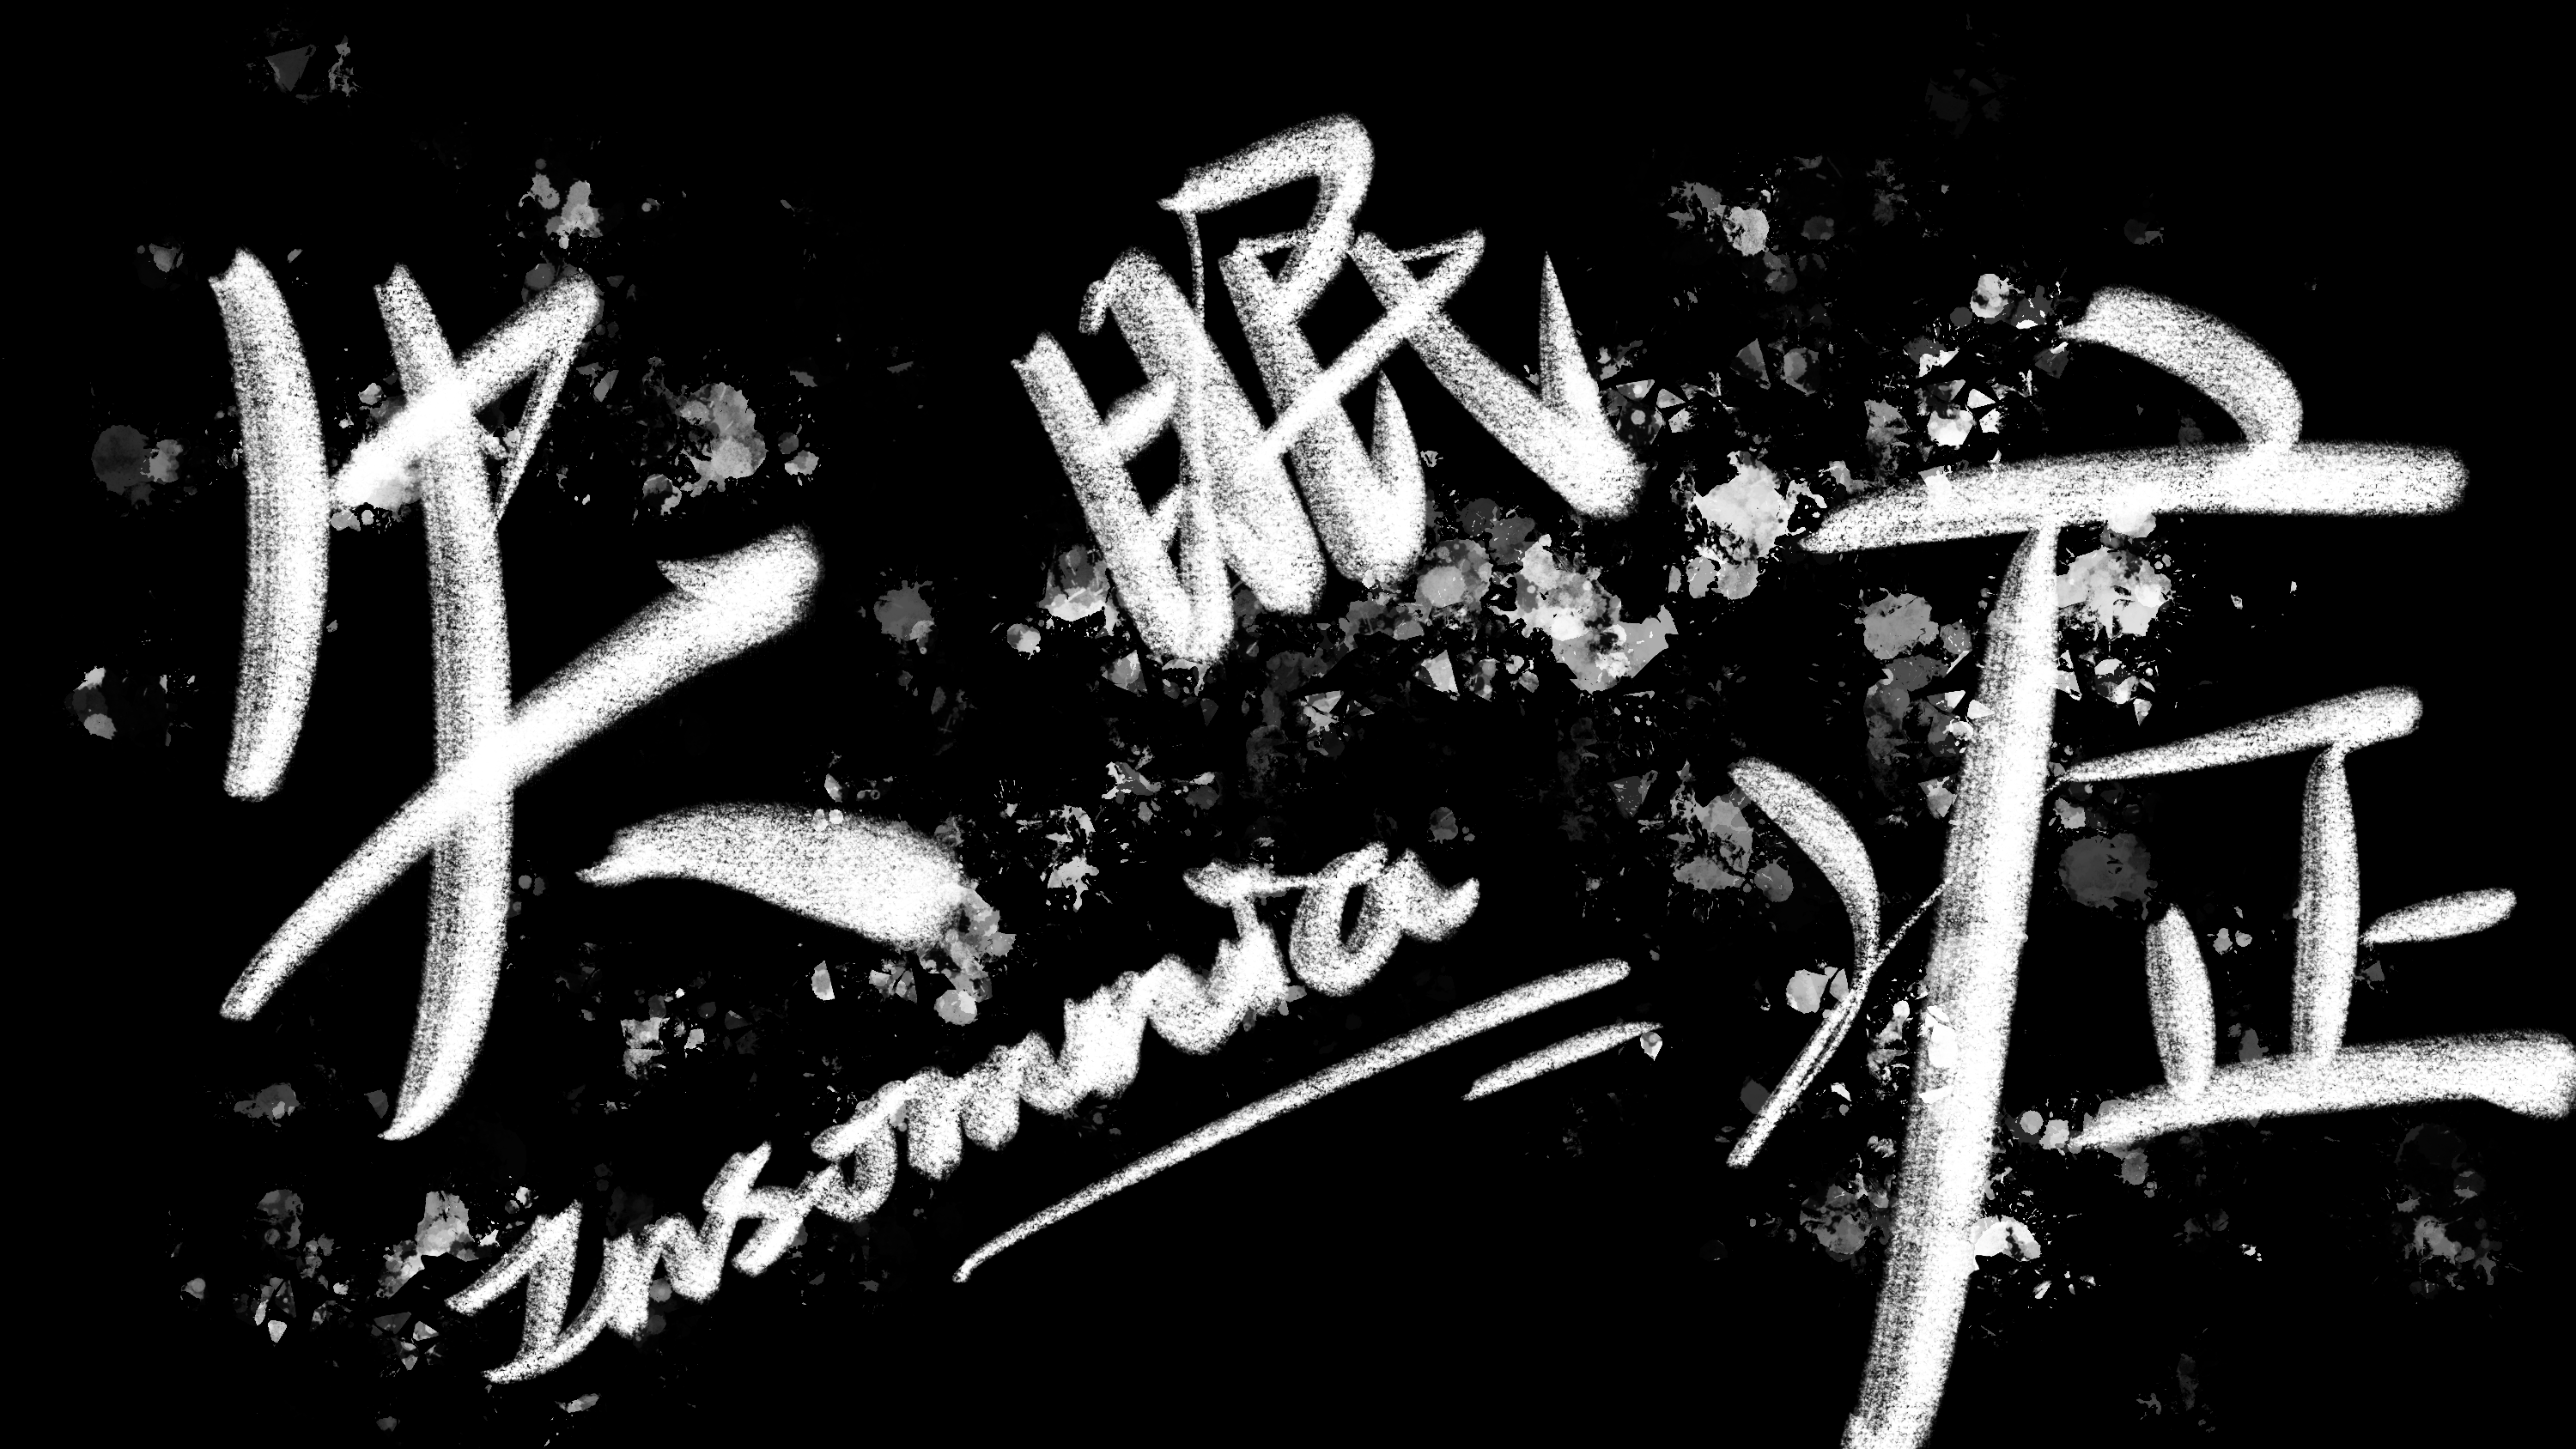 失眠症
Insomnia